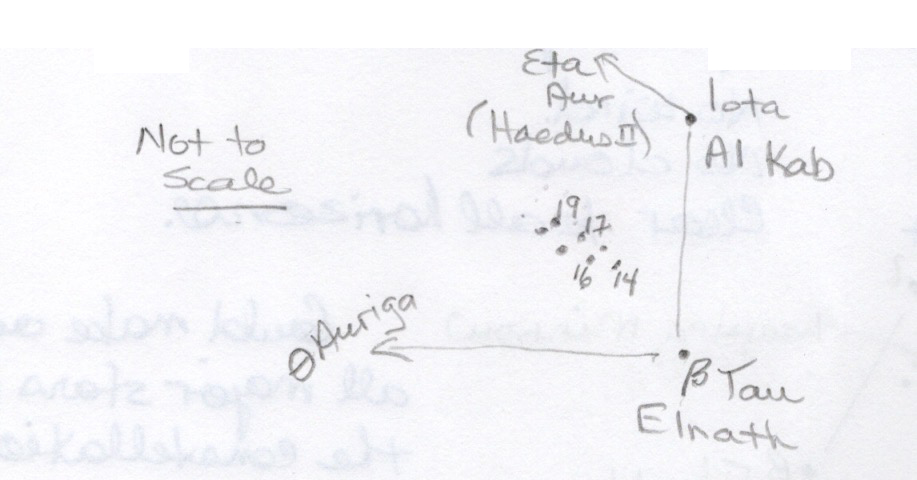 Eta
Aur
(Haedus II)
Iota
Al Kab
Not to
Scale
19
17
16
14
θ Auriga
β Tau
Elnath